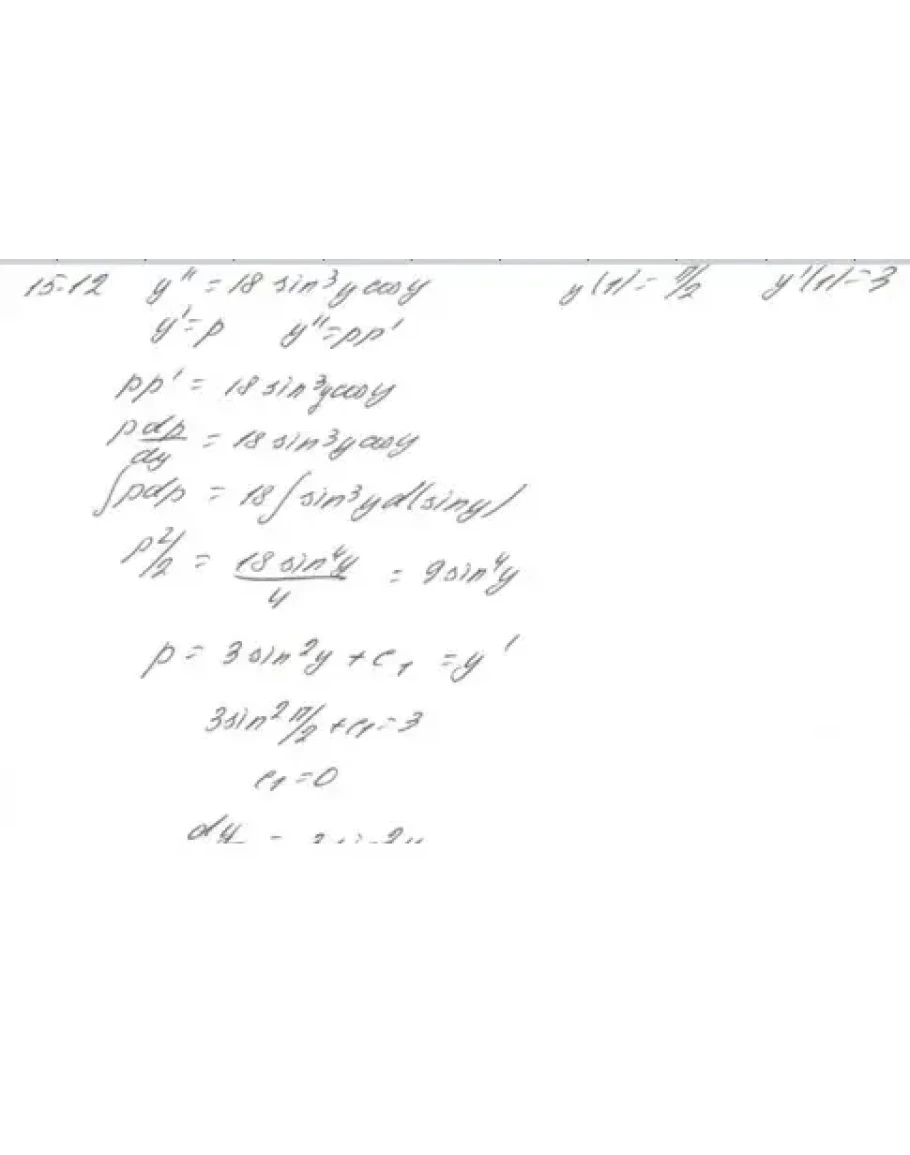 15.12 y'' = 18 sin³y cosy y(1) = π/2 y'(1) = 3
y' = p y'' = pp'
pp' = 18 sin³y cosy
p dp/dy = 18 sin³y cosy
∫pdp = 18 ∫ sin³y d(siny)
p²/2 = 18 sin⁴y / 4 = 9 sin⁴y
p = 3 sin²y + c₁ = y'
3 sin² π/2 + c₁ = 3
c₁ = 0
dy =